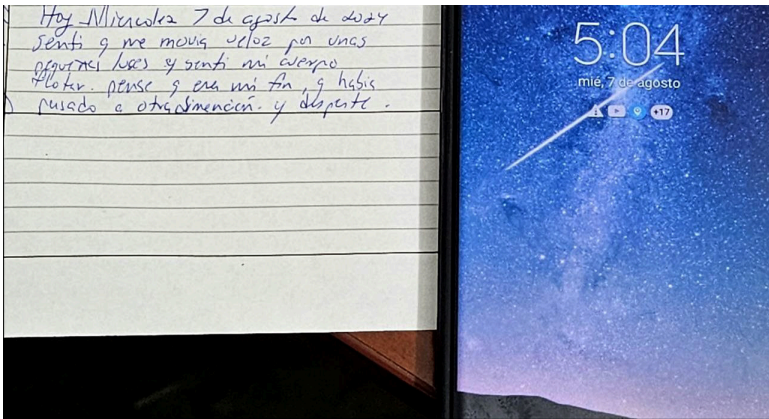 Hoy Miercoles 7 de agosto de 2024
senti q me movia veloz por unas
pequeñas luces y senti mi cuerpo
flotar. pense q era mi fin, q habia
pasado a otra dimencion. y desperte.
5:04
mié, 7 de agosto
+17